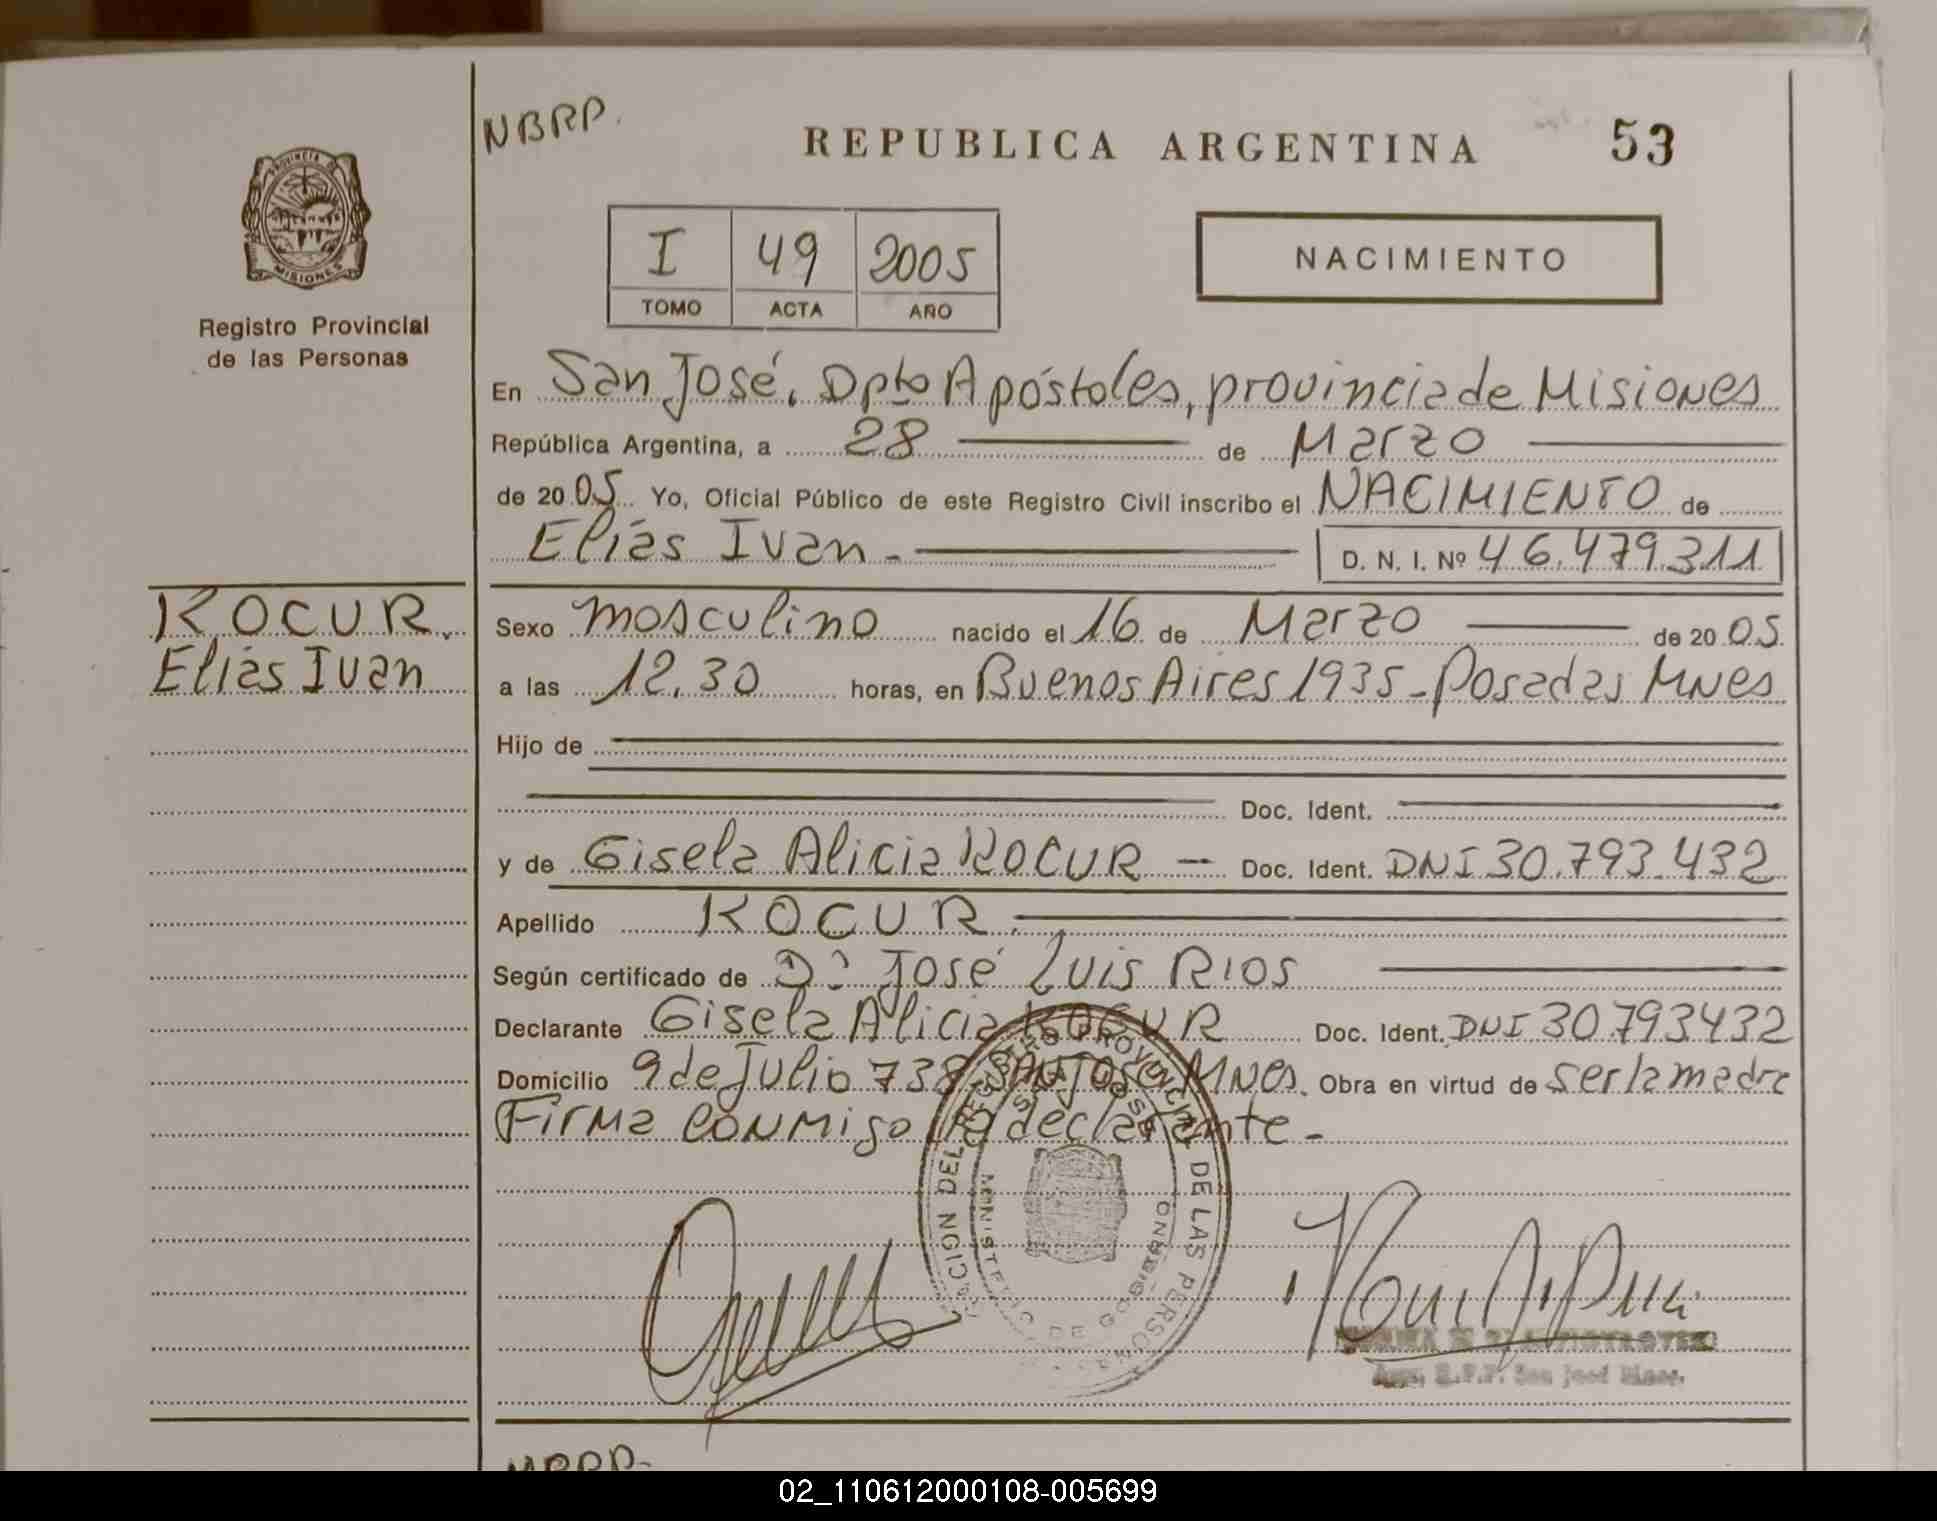 NBRP.
REPUBLICA ARGENTINA 53
PROVINCIA DE
MISIONES
Registro Provincial
de las Personas
I 49 2005
TOMO ACTA AÑO
NACIMIENTO
En San José, Dpto Apóstoles, provincia de Misiones
República Argentina, a 28 de Marzo
de 2005 Yo, Oficial Público de este Registro Civil inscribo el NACIMIENTO de
Elías Ivan.- D. N. I. Nº 46.479.311
KOCUR.
Elías Ivan
Sexo masculino nacido el 16 de Marzo de 2005
a las 12.30 horas, en Buenos Aires 1935-Posadas Mnes
Hijo de
Doc. Ident.
y de Gisela Alicia KOCUR -- Doc. Ident. DNI 30.793.432
Apellido KOCUR.
Según certificado de Dr. José Luis RIOS
Declarante Gisela Alicia KOCUR Doc. Ident. DNI 30.793432
Domicilio 9 de Julio 738-SAN JOSE Mnes. Obra en virtud de ser la madre
Firma conmigo la declarante.-
DEL REGISTRO PROVINCIAL DE LAS PERSONAS
SAN JOSE
MINISTERIO DE GOBIERNO
R.P.P. San José Mnes.
02_110612000108-005699